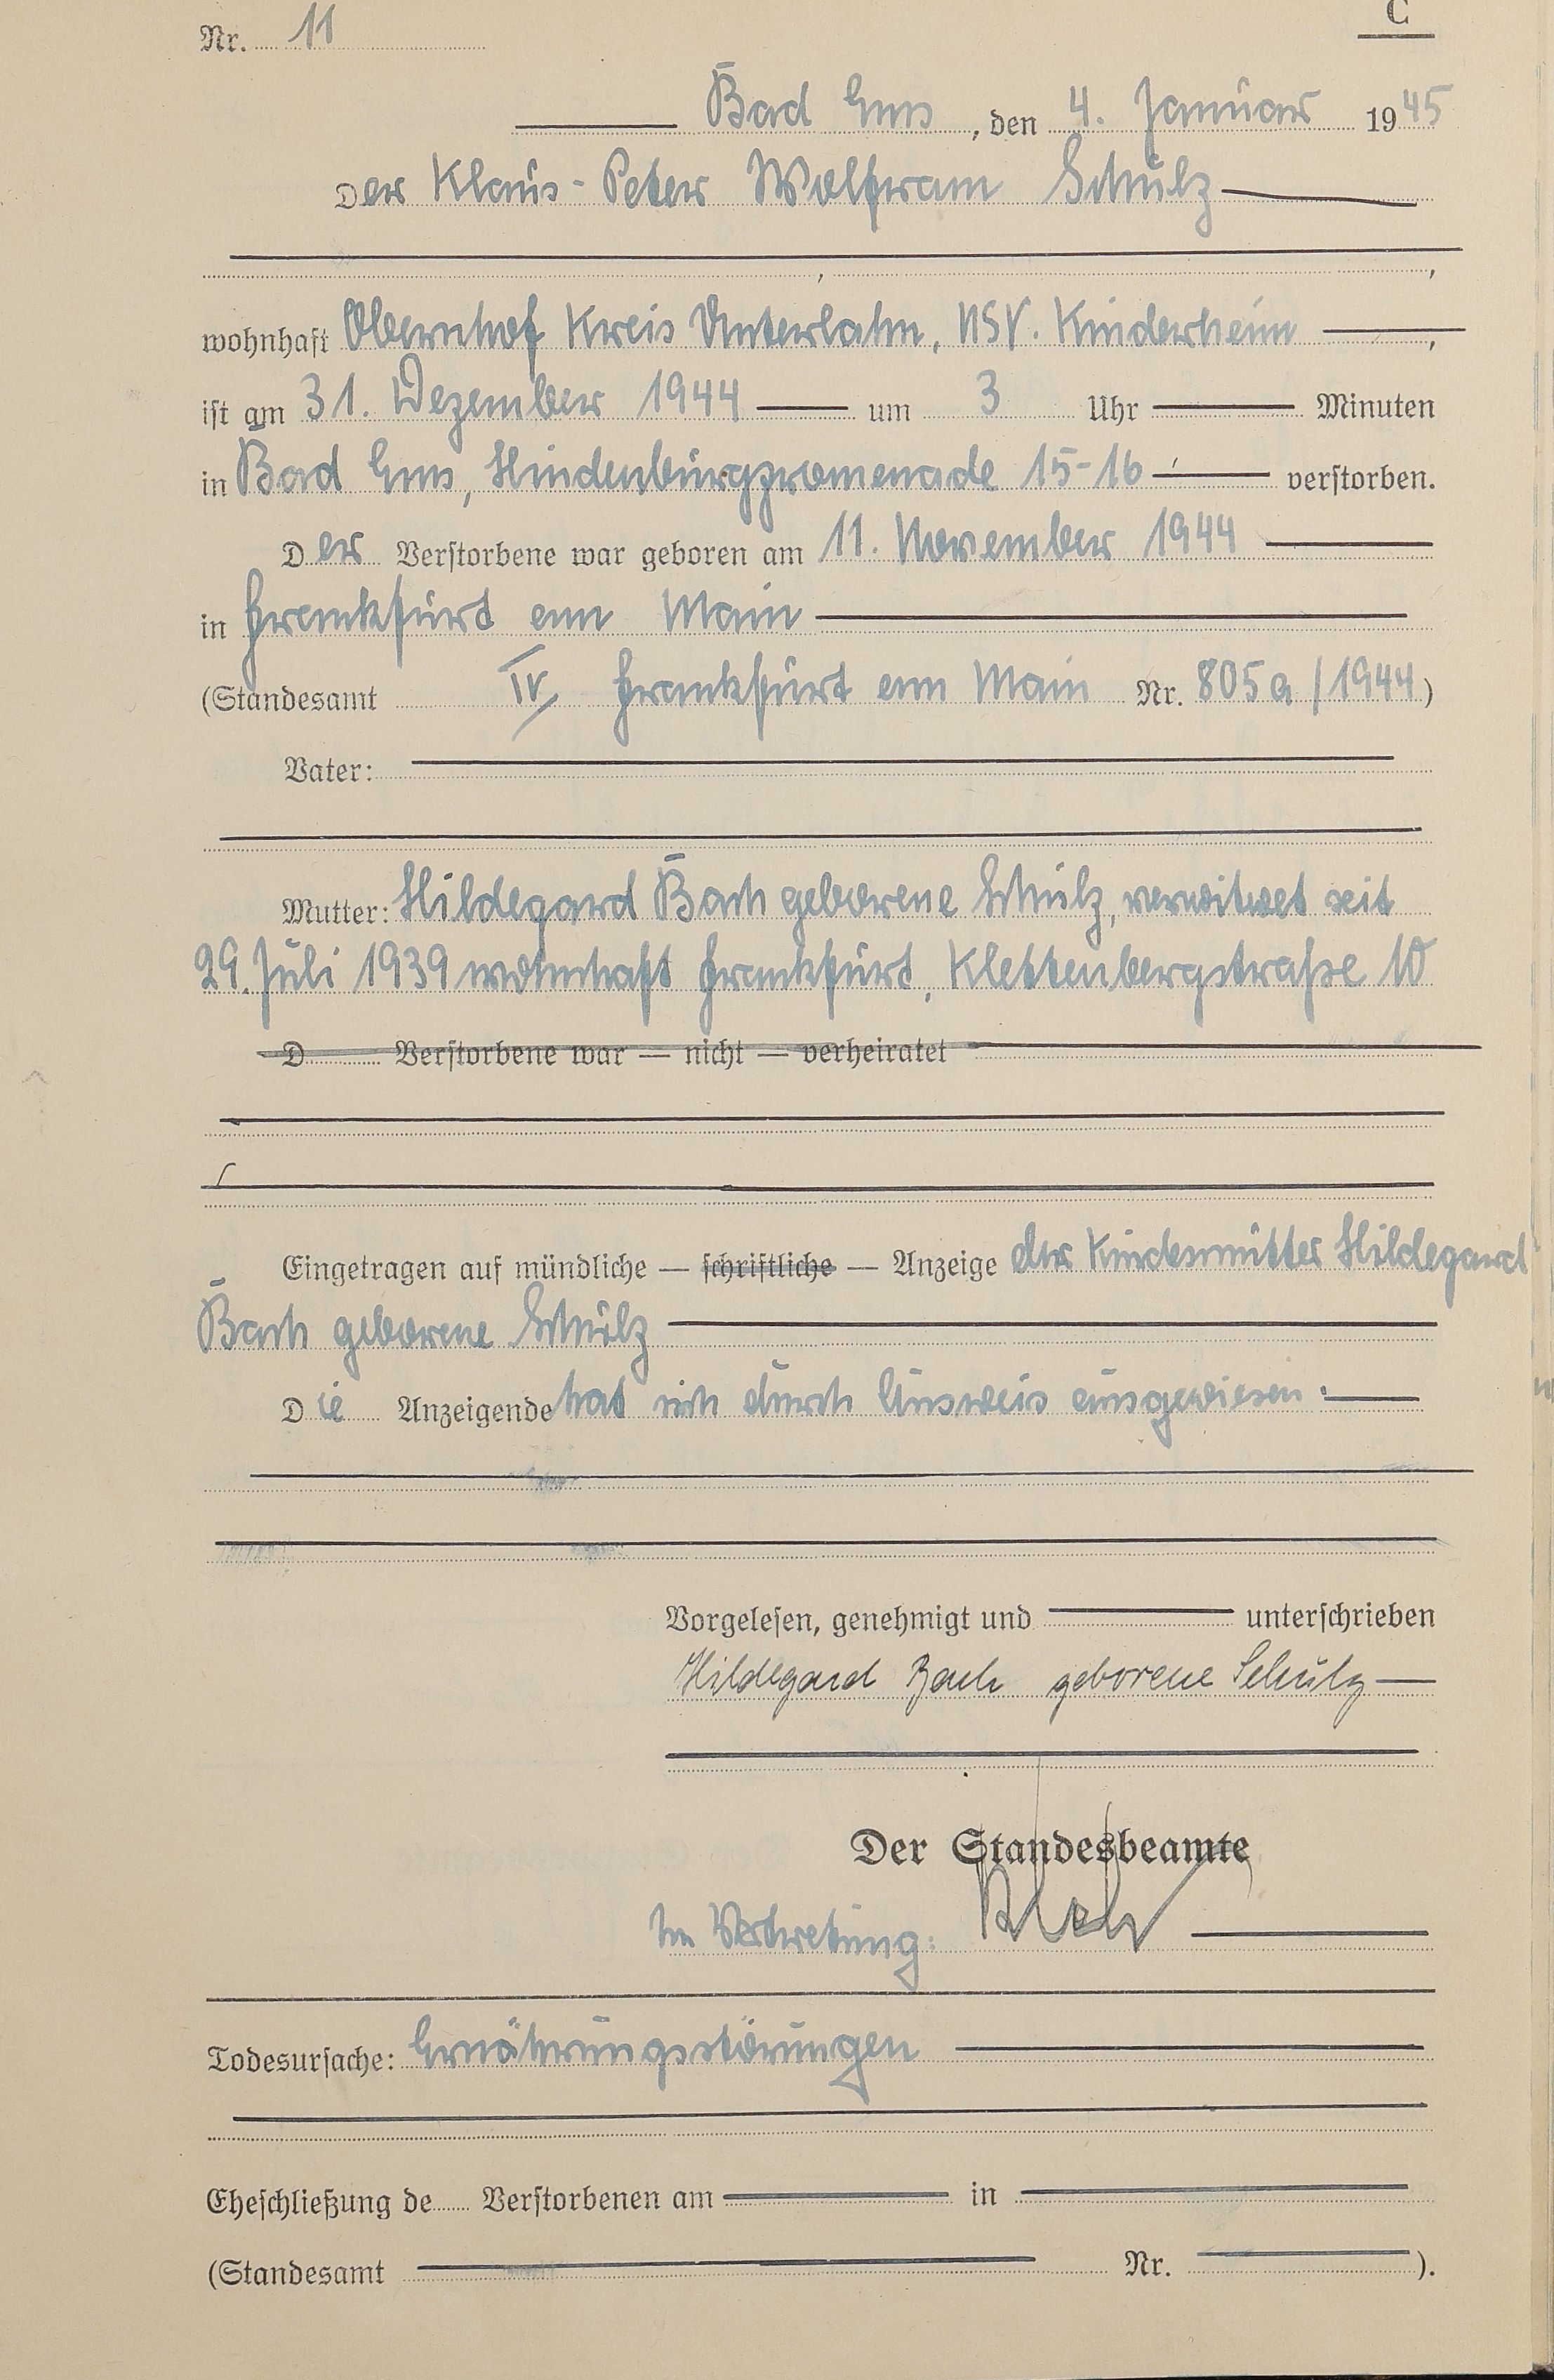 Nr. 11
C
Bad Ems, den 4. Januar 1945
Der Klaus-Peter Wolfram Schulz
wohnhaft Obernhof Kreis Unterlahn, NSV. Kinderheim,
ist am 31. Dezember 1944 um 3 Uhr Minuten
in Bad Ems, Hindenburgpromenade 15-16 verstorben.
Der Verstorbene war geboren am 11. November 1944
in Frankfurt am Main
(Standesamt IV Frankfurt am Main Nr. 805a/1944)
Vater:
Mutter: Hildegard Bach geborene Schulz, verwitwet seit
29. Juli 1939 wohnhaft Frankfurt, Klettenbergstraße 10
D Verstorbene war — nicht — verheiratet
Eingetragen auf mündliche — schriftliche — Anzeige der Kindesmutter Hildegard
Bach geborene Schulz
Die Anzeigende hat sich durch Ausweis ausgewiesen.
Vorgelesen, genehmigt und unterschrieben
Hildegard Bach geborene Schulz
Der Standesbeamte
In Vertretung:
Todesursache: Ernährungsstörungen
Eheschließung de Verstorbenen am in
(Standesamt Nr. ).